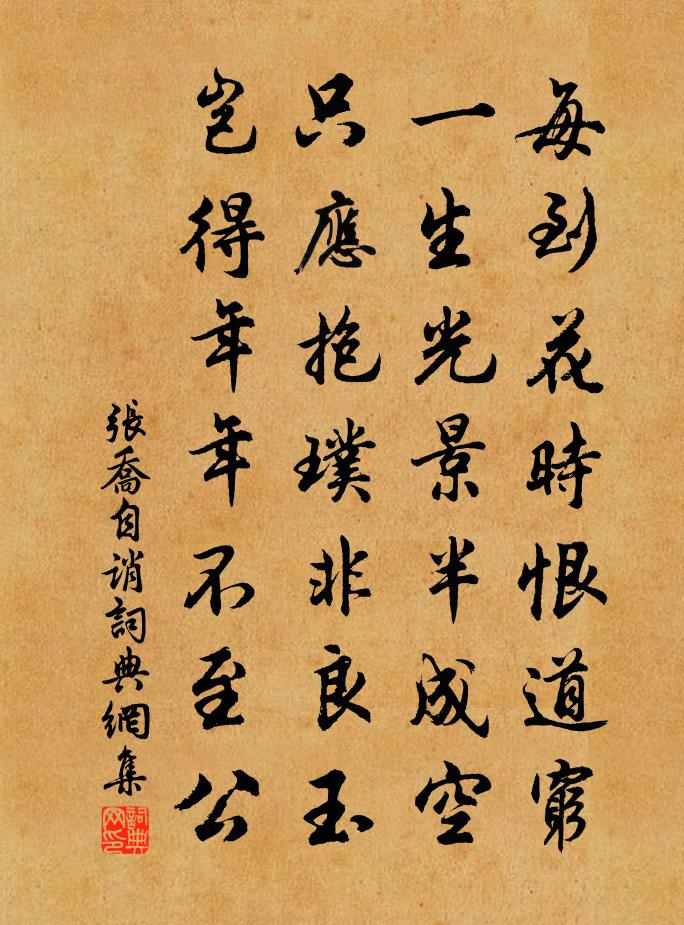 每到花時恨道窮
一生光景半成空
只應抱璞非良玉
豈得年年不至公
張喬自誚詞典網集
詞典网印